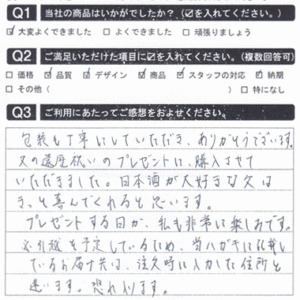 Q1 当社の商品はいかがでしたか？（☑を入れてください。）
☑大変よくできました □よくできました □頑張りましょう
Q2 ご満足いただけた項目に☑を入れてください。（複数回答可）
□価格 ☑品質 ☑デザイン ☑商品 ☑スタッフの対応 ☑納期
□その他（ ） □特になし
Q3 ご利用にあたってご感想をおよせください。
包装も丁寧にしていただき、ありがとうございます。
父の還暦祝いのプレゼントに、購入させて
いただきました。日本酒が大好きな父は
きっと喜んでくれると思います。
プレゼントする日が、私も非常に楽しみです。
を予定しているため、当ハガキに記載し
ているお届け先は、注文時に入力した住所と
違います。恐れ入ります。